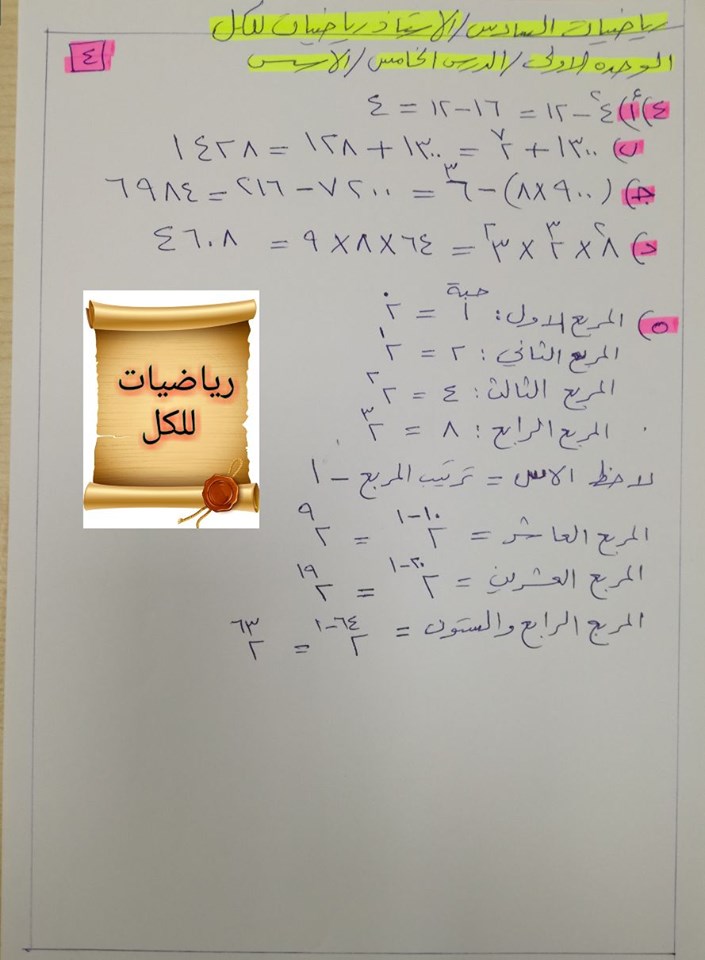 رياضيات السادس / الاستاذ رياضيات للكل
الوحده الاولى / الدرس الخامس / الاسس
٤
٤) أ) ٤² - ١٢ = ١٦ - ١٢ = ٤
ب) ١٣٠٠ + ٢⁷ = ١٣٠٠ + ١٢٨ = ١٤٢٨
ج) (٩٠٠ × ٨) - ٦³ = ٧٢٠٠ - ٢١٦ = ٦٩٨٤
د) ٨² × ٢³ × ٣² = ٦٤ × ٨ × ٩ = ٤٦٠٨
٥) المربع الاول: ١ حبة = ٢⁰
المربع الثاني: ٢ = ٢¹
المربع الثالث: ٤ = ٢²
المربع الرابع: ٨ = ٢³
لاحظ الاس = ترتيب المربع - ١
المربع العاشر = ٢¹⁰⁻¹ = ٢⁹
المربع العشرين = ٢²⁰⁻¹ = ٢¹⁹
المربع الرابع والستون = ٢⁶⁴⁻¹ = ٢⁶³
رياضيات
للكل